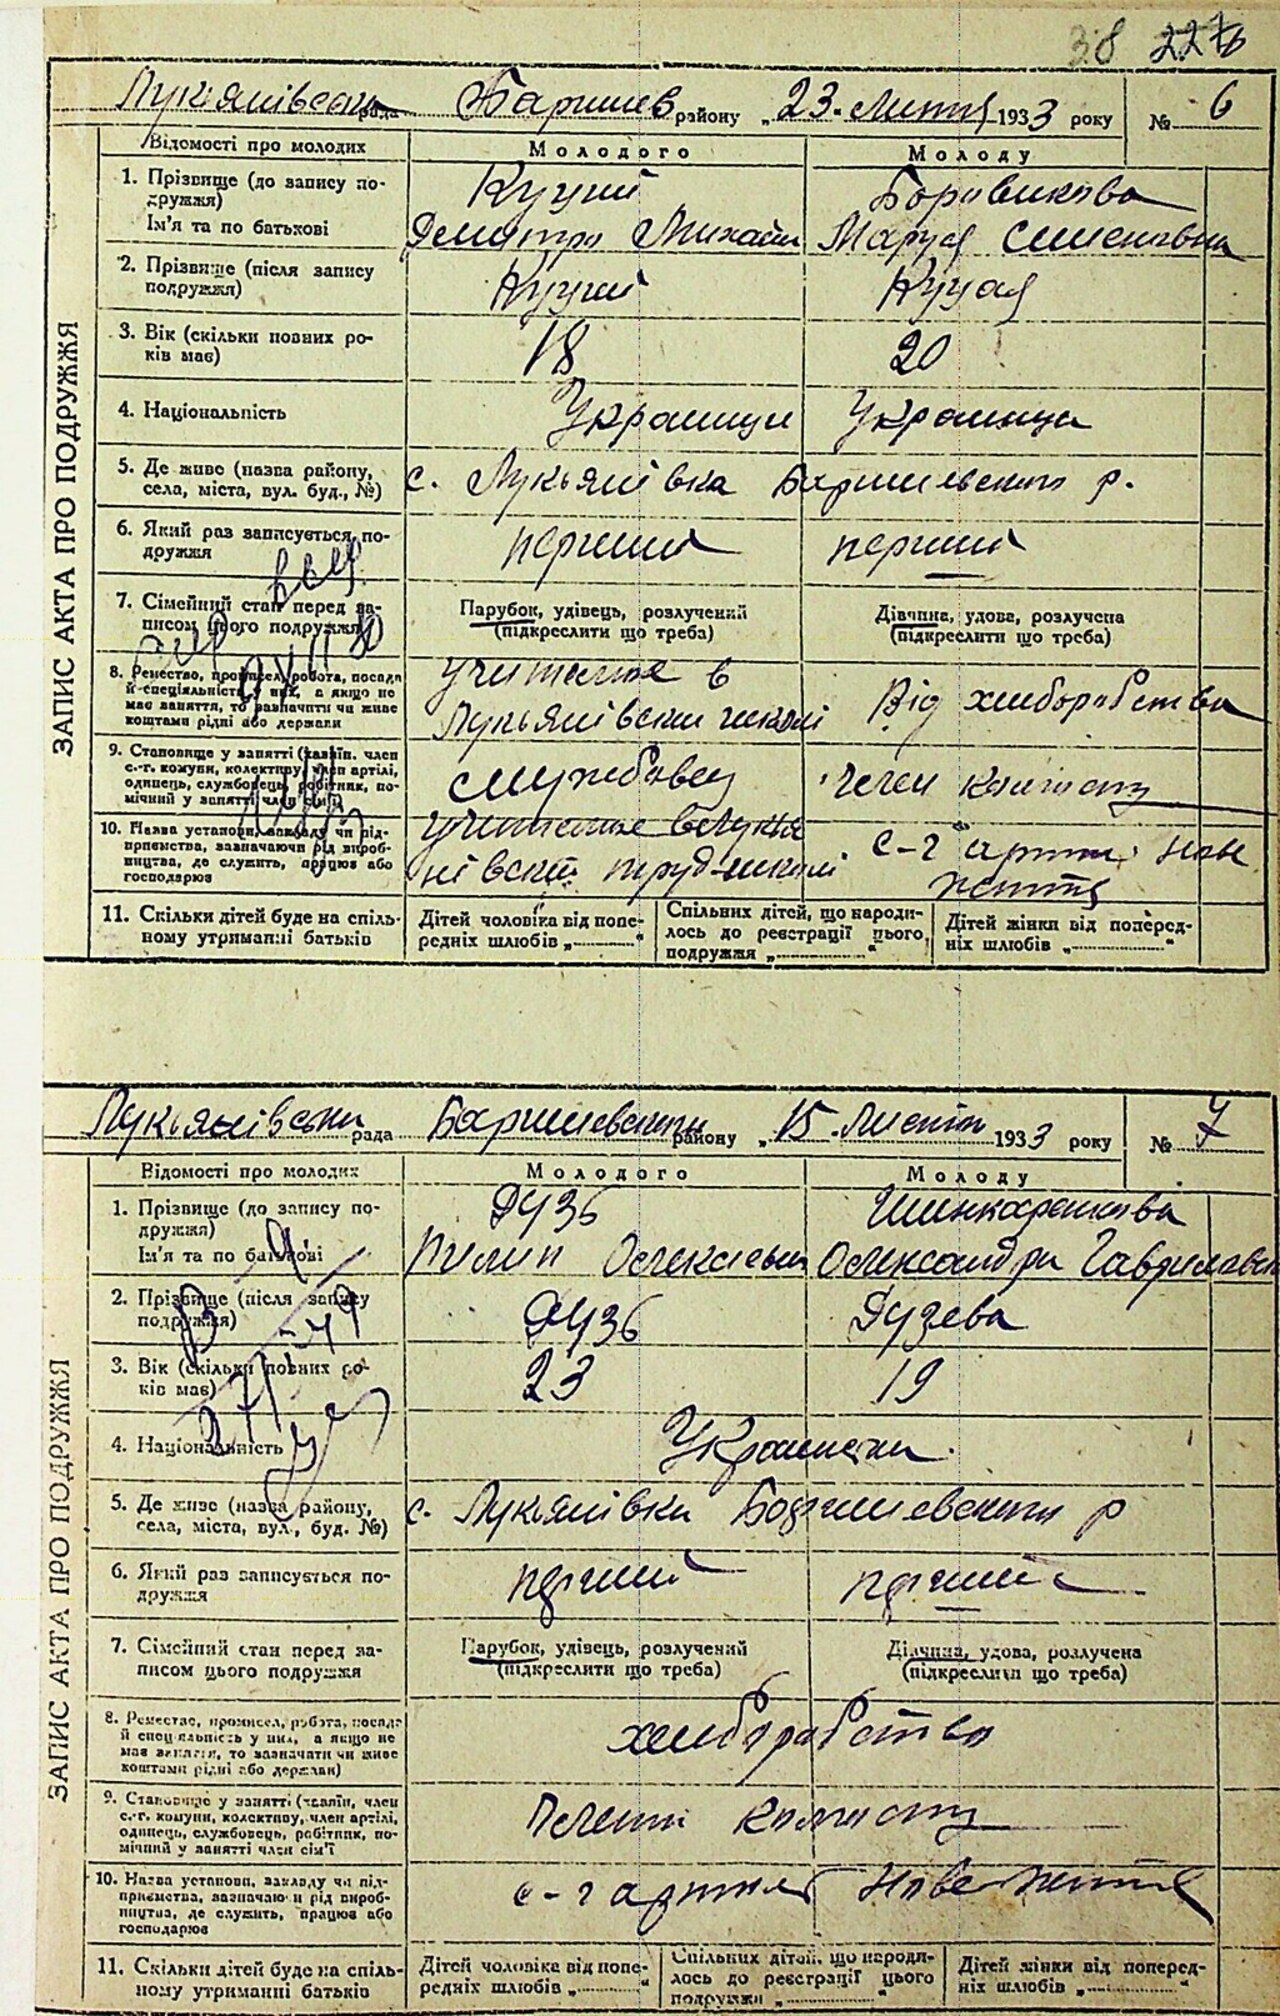 38 227б
Лук'янівська рада Баришев району „23. Лютня 1933 року № 6
Відомості про молодих
Молодого
Молоду
1. Прізвище (до запису по-
дружжя)
Ім'я та по батькові
Куций
Дмитро Михайл
Боровикова
Маруся Семеновна
2. Прізвище (після запису
подружжя)
Куций
Куцая
3. Вік (скільки повних ро-
ків має)
18
20
4. Національність
Украинци
Украинци
5. Де живе (назва району,
села, міста, вул. буд., №)
с. Лукьянівка Баришевского р.
6. Який раз записується по-
дружжя
перший
перший
7. Сімейний стан перед за-
писом цього подружжя
Парубок, удівець, розлучений
(підкреслити що треба)
Дівчина, удова, розлучена
(підкреслити що треба)
8. Ремество, промисел, робота, посада
й спеціяльність у них, а якщо не
має заняття, то зазначати чи живе
коштами рідні або держави
учителье в
Лукьянівски школі
Від хлиборобства
9. Становище у занятті (хазяїн, член
с.-г. комуни, колективу, член артілі,
одинець, службовець, робітник, по-
мічний у занятті член сім'ї)
службовец
Член колгоспу
10. Назва установи, закладу чи під-
приємства, зазначаючи рід вироб-
ництва, де служить, працює або
господарює
учителье в Лукья
нівский труд-школі
с-г артти Нове
життя
11. Скільки дітей буде на спіль-
ному утриманні батьків
Дітей чоловіка від попе-
редніх шлюбів „ “
Спільних дітей, що народи-
лось до реєстрації цього
подружжя „ “
Дітей жінки від поперед-
ніх шлюбів „ “
ЗАПИС АКТА ПРО ПОДРУЖЖЯ
Лукьянівски рада Баришевского району „15. Лютня 1933 року № 7
Відомості про молодих
Молодого
Молоду
1. Прізвище (до запису по-
дружжя)
Ім'я та по батькові
Дузь
Пилип Олексієвич
Шинкаренкова
Олександра Гавриловна
2. Прізвище (після запису
подружжя)
Дузь
Дузева
3. Вік (скільки повних ро-
ків має)
23
19
4. Національність
Украински
5. Де живе (назва району,
села, міста, вул., буд. №)
с. Лукьянівки Баришевского р
6. Який раз записується по-
дружжя
перший
перший
7. Сімейний стан перед за-
писом цього подружжя
Парубок, удівець, розлучений
(підкреслити що треба)
Дівчина, удова, розлучена
(підкреслити що треба)
8. Ремество, промисел, робота, посада
й спеціяльність у них, а якщо не
має заняття, то зазначати чи живе
коштами рідні або держави)
хлиборобство
9. Становище у занятті (хазяїн, член
с.-г. комуни, колективу, член артілі,
одинець, службовець, робітник, по-
мічний у занятті член сім'ї
Члени колгоспу
10. Назва установи, закладу чи під-
приємства, зазначаючи рід вироб-
ництва, де служить, працює або
господарює
с-г артиль Нове життє
11. Скільки дітей буде на спіль-
ному утриманні батьків
Дітей чоловіка від попе-
редніх шлюбів „ “
Спільних дітей, що народи-
лось до реєстрації цього
подружжя „ “
Дітей жінки від поперед-
ніх шлюбів „ “
ЗАПИС АКТА ПРО ПОДРУЖЖЯ